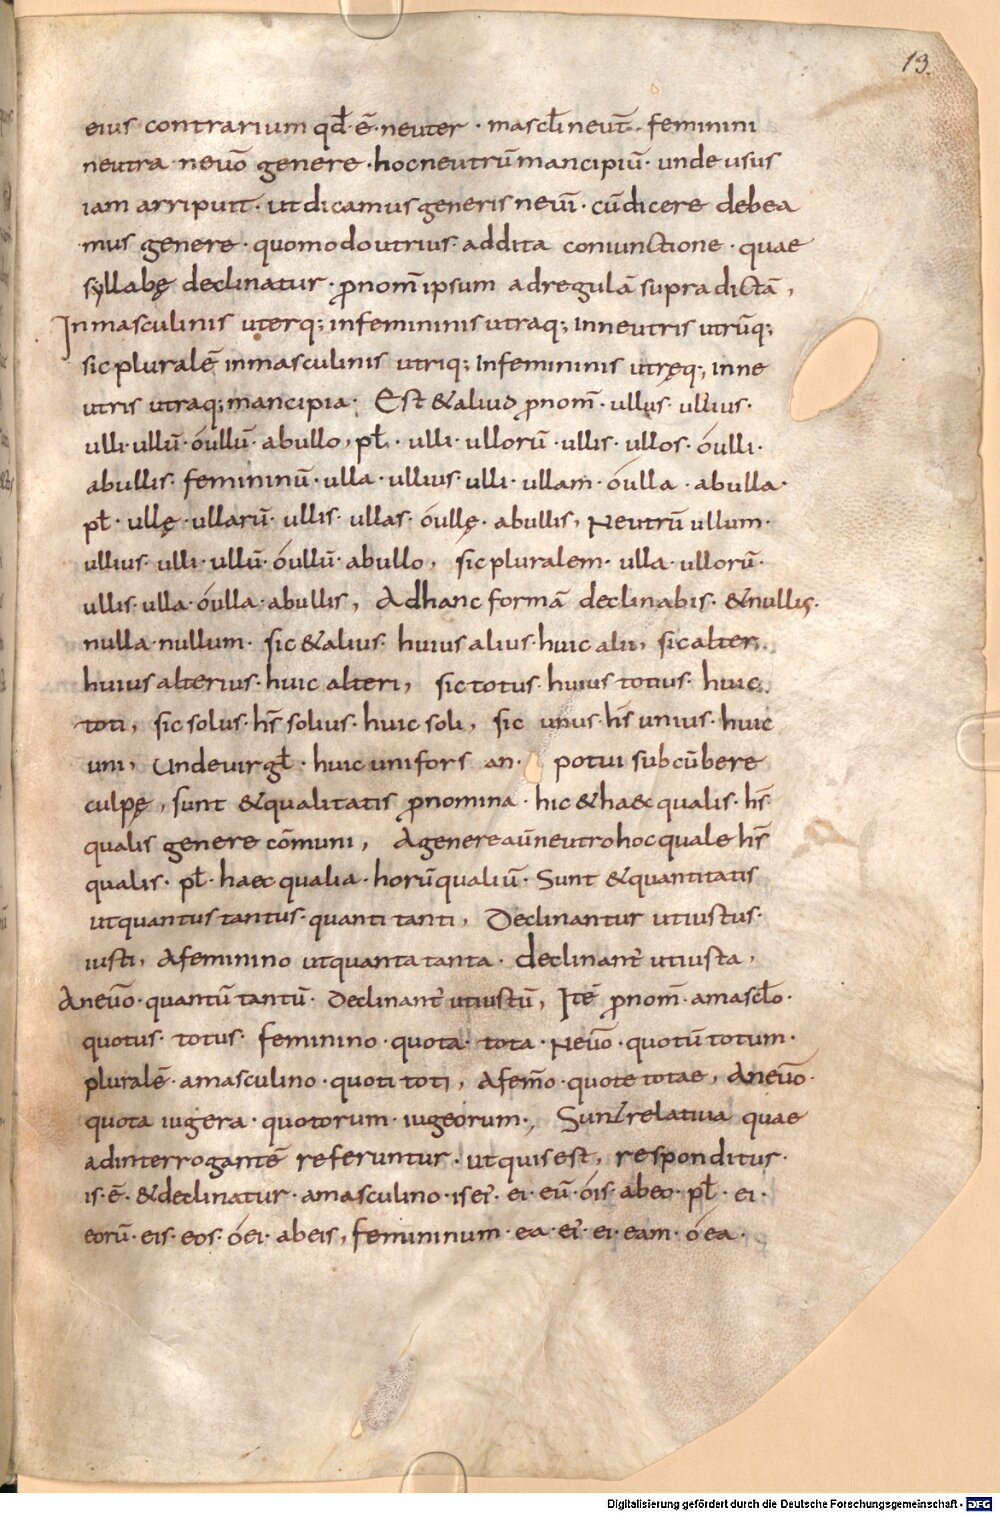 13.
eius contrarium qđ ē· neuter · mascłi neut̄· feminini
neutra neuō genere · hoc neutrū mancipiū· unde usus
iam arripuit · ut dicamus generis neuī · cū dicere debea
mus genere · quomodo utrius· addita coniunctione · quae
syllabę declinatur · ꝓnom̄ ipsum ad regulā supra dictā,
In masculinis uterq; in femininis utraq; In neutris utrūq;
sic pluralē in masculinis utriq; In femininis utręq; In ne
utris utraq; mancipia· Est & aliud ꝓnom̄ · ullus· ullius·
ulli· ullū· ó ullū· ab ullo, pł · ulli· ullorū · ullis· ullos· ó ulli·
ab ullis· femininū · ulla · ullius· ulli· ullam· ó ulla · ab ulla·
pł · ullę · ullarū · ullis· ullas· ó ullę· ab ullis, Neutrū ullum·
ullius· ulli· ullū· ó ullū· ab ullo, sic pluralem· ulla· ullorū·
ullis· ulla· ó ulla· ab ullis, Ad hanc formā declinabis· & nullus·
nulla· nullum· sic & alius· huius alius· huic alii, sic alter·
huius alterius· huic alteri, sic totus· huius totius· huic
toti, sic solus· hs̄ solius· huic soli, sic unus· hs̄ unius· huic
uni, Unde uirgł · huic uni fors an· potui subcūbere
culpę, sunt & qualitatis ꝓnomina · hic & haec qualis· hs̄
qualis genere cōmuni, A genere aū neutro hoc quale hs̄
qualis· pł· haec qualia· horū qualiū· Sunt & quantitatis
ut quantus tantus· quanti tanti, Declinantur ut iustus·
iusti, A feminino ut quanta tanta· declinant̄ ut iusta,
A neuō· quantū tantū· Declinant̄ ut iustū, Itē ꝓnom̄· a mascło·
quotus· totus· feminino· quota· tota· Neuō· quotū totum·
pluralē· a masculino· quoti toti, A fem̄o· quote totae, A neuō·
quota iugera· quotorum· iugeorum·, Sunt relatiua quae
ad interrogantē referuntur· ut quis est, responditus·
is· ē· & declinatur· a masculino· is ei᷒· ei· eū· ó is· ab eo· pł· ei·
eorū· eis· eos· ó ei· ab eis, femininum· ea· ei᷒· ei· eam· ó ea·
Digitalisierung gefördert durch die Deutsche Forschungsgemeinschaft - DFG